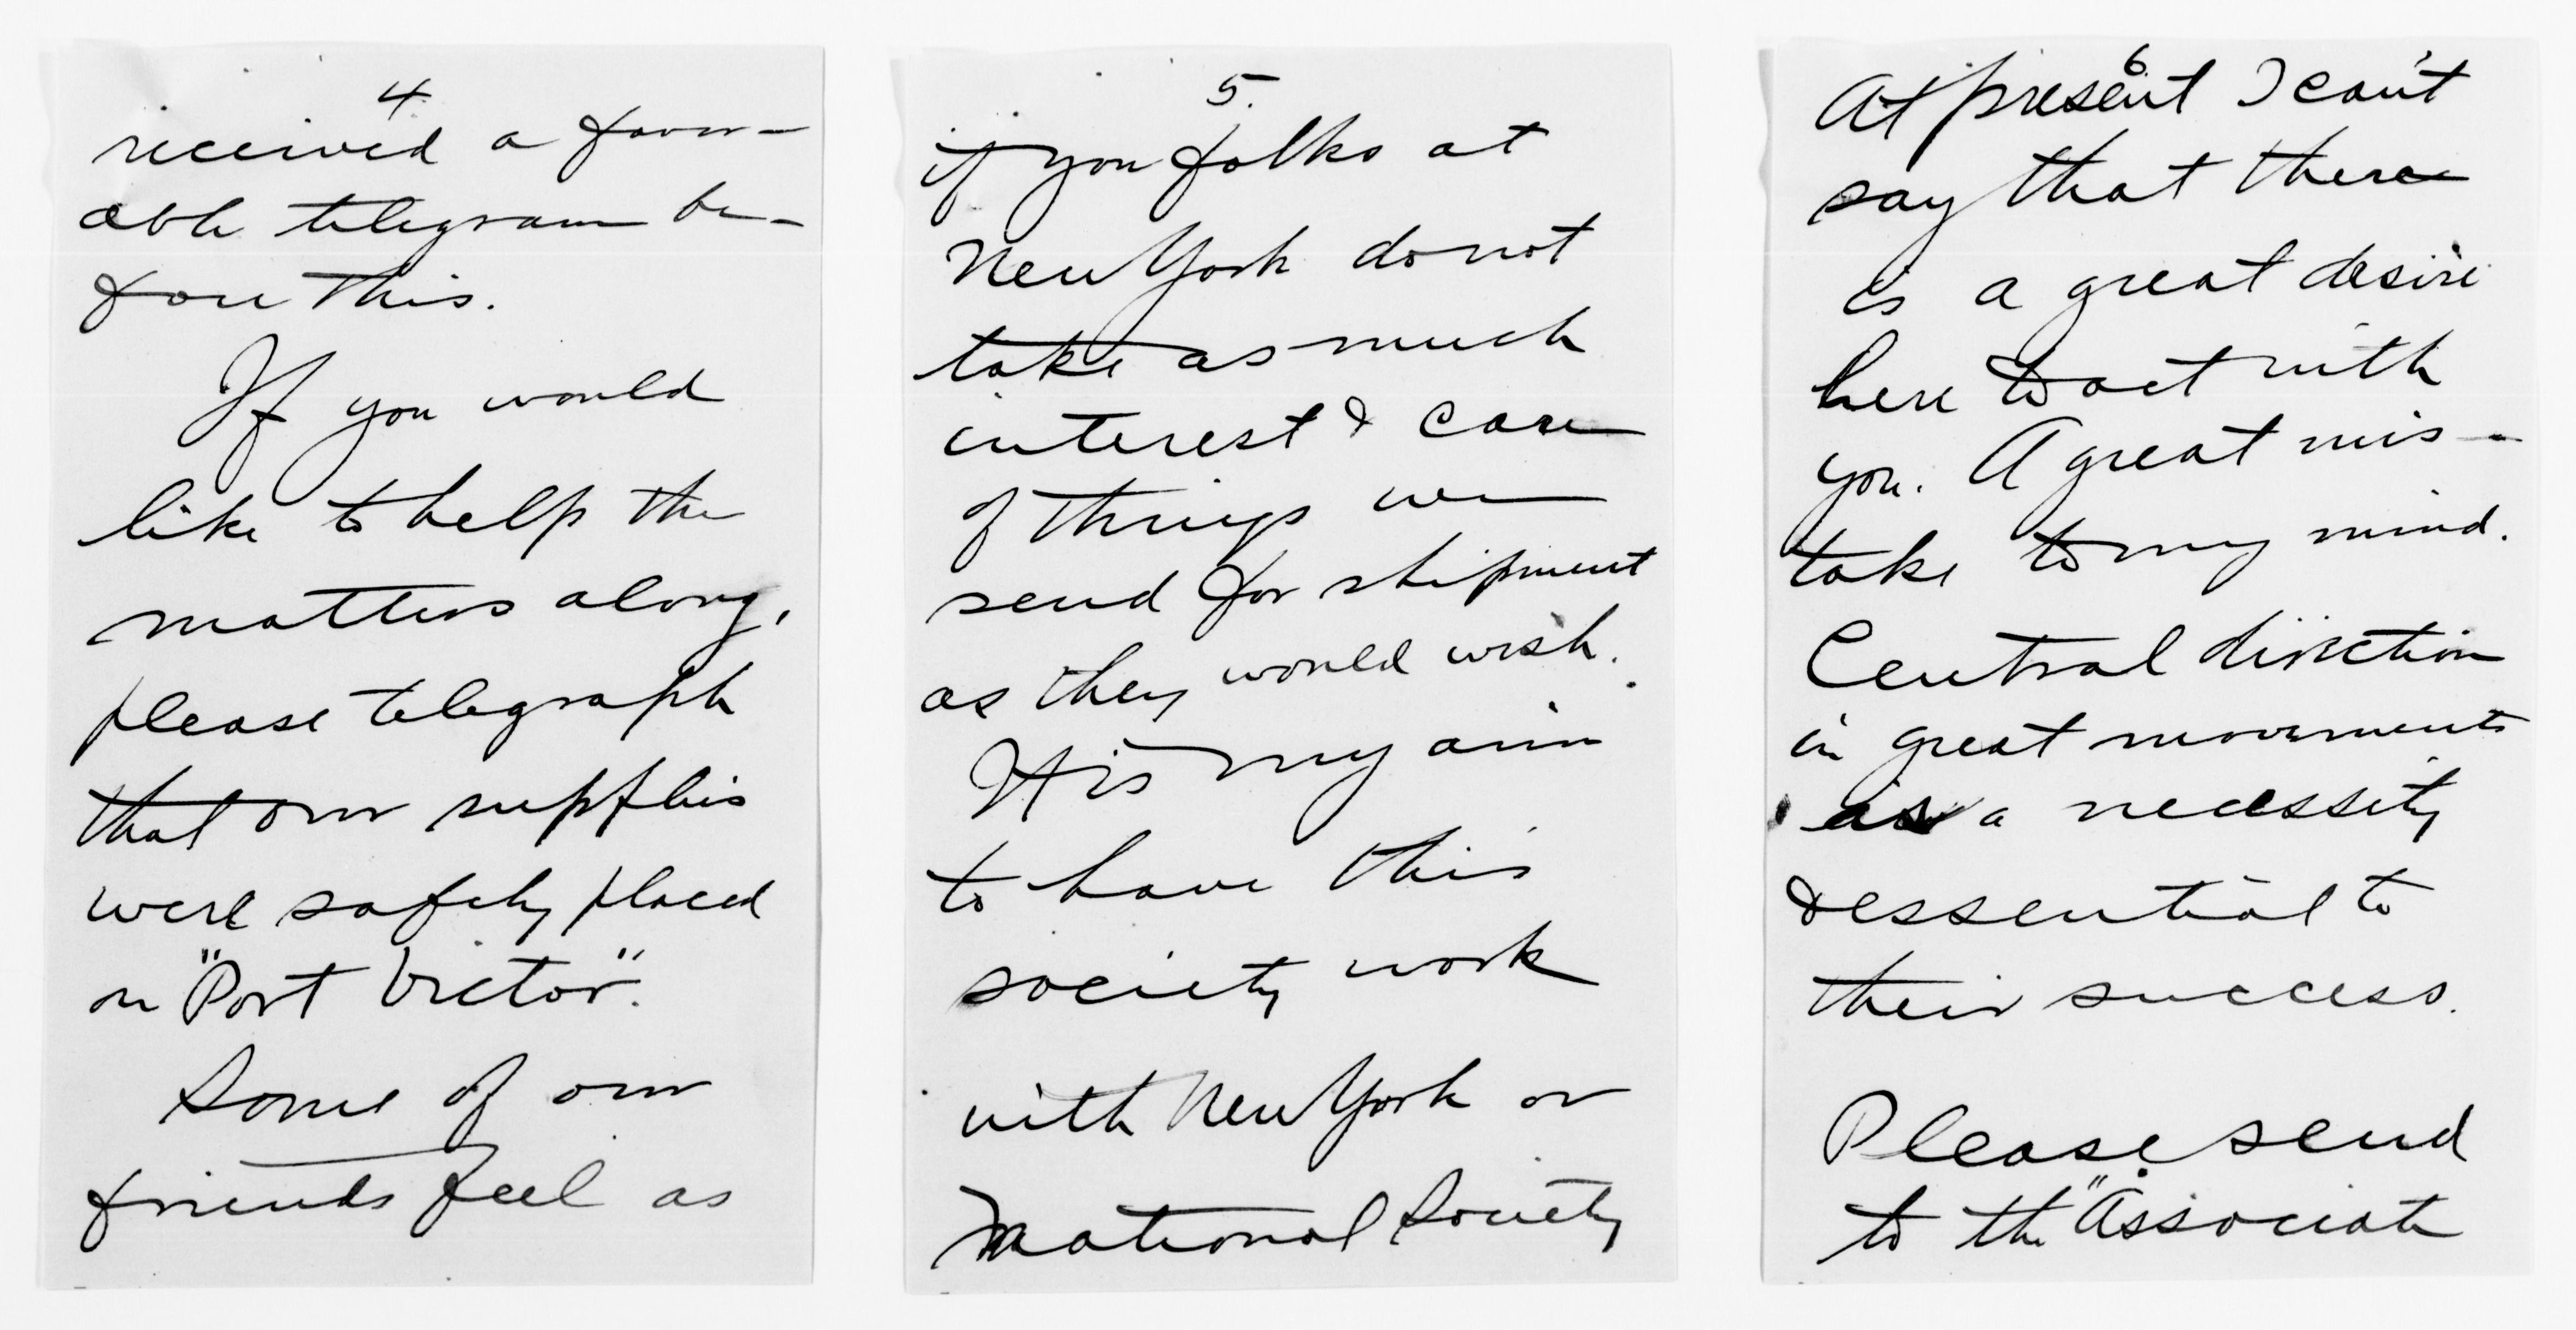 4.
received a favor-
able telegram be-
fore this.
If you would
like to help the
matters along,
please telegraph
that our supplies
were safely placed
on "Port Victor".
Some of our
friends feel as
5.
if you folks at
New York do not
take as much
interest & care
of things we
send for shipment
as they would wish.
It is my aim
to have this
society work
with New York or
National Society
6
At present I can't
say that there
is a great desire
here to act with
you. A great mis-
take to my mind.
Central direction
in great movements
is a necessity
& essential to
their success.
Please send
to the "Associate